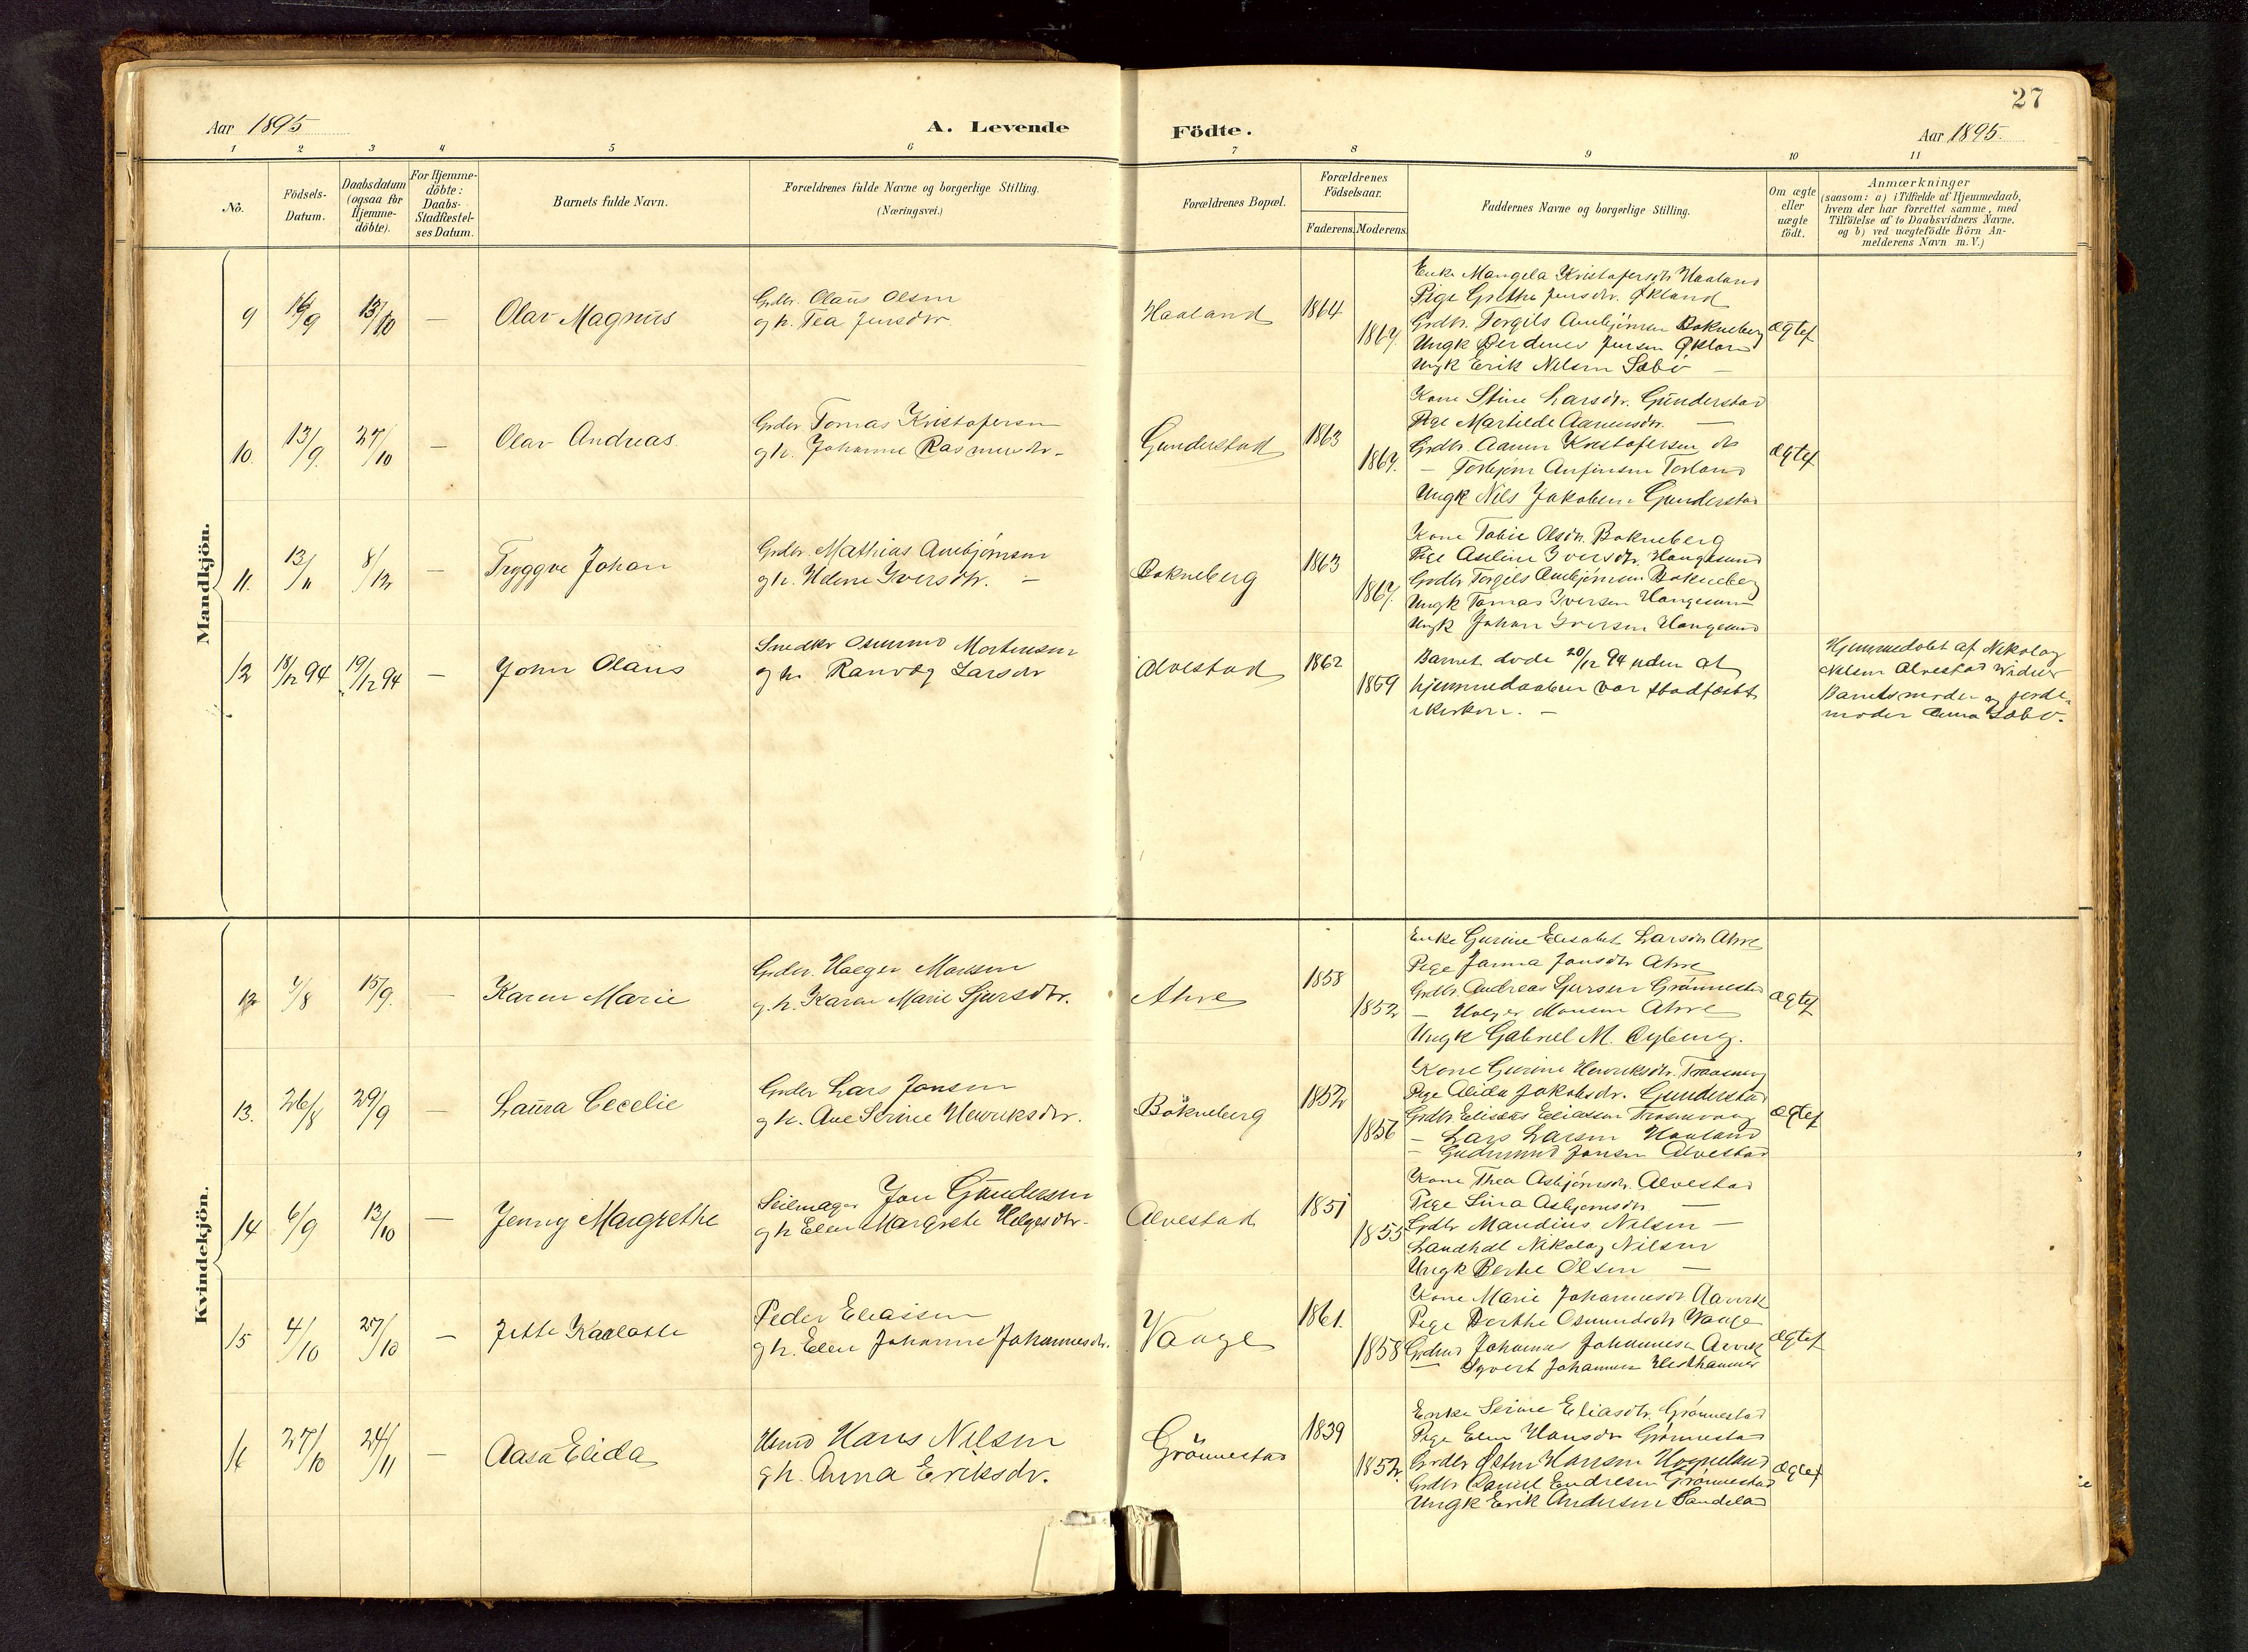 27
Aar 1895
A. Levende Födte.
Aar 1895.
1 2 3 4 5 6 7 8 9 10 11
No.
Födsels-Datum.
Daabsdatum (ogsaa for Hjemme-döbte).
For Hjemme-döbte: Daabs-Stadfæstel-ses Datum.
Barnets fulde Navn.
Forældrenes fulde Navne og borgerlige Stilling.
(Næringsvei.)
Forældrenes Bopæl.
Forældrenes Födselsaar.
Faderens. Moderens.
Faddernes Navne og borgerlige Stilling.
Om ægte eller uægte födt.
Anmærkninger
(saasom: a) i Tilfælde af Hjemmedaab,
hvem der har forrettet samme, med
Tilföielse af to Daabsvidners Navne.
og b) ved uægtefödte Börn An-
melderens Navn m. V.)
Mandkjön.
9 16/9 13/10 — Olav Magnus
Grdbr. Olaus Olsen
og h. Tea Jensdtr.
Haaland 1864 1867
Enke Mangela Kristofersdtr Haaland
Pige Grethe Jensdtr. Økland
Grdbr. Torgils Arnbjørnsen Bokneberg
Ungk Jensen Økland
Ungk Erik Nilsen Sæbö
ægtef
10. 13/9. 27/10 — Olav Andreas.
Grdbr Tomas Kristofersen
og h. Johanne Rasmusdtr.
Gunderstad 1863 1867.
Kone Stine Larsdtr. Gunderstad
Pige Martilde Aanensdtr. —
Grdbr. Aanen Kristofersen ds
— Torbjørn Anfinsen Torland
Ungk Nils Jakobsen Gunderstad
ægtef
11. 13/11 8/12 — Tryggve Johan
Grdbr. Mathias Arnbjørnsen
og h. Helene Iversdtr. —
Bokneberg 1863 1867.
Kone Tobie Olsdtr. Bokneberg
Pige Aseline Iversdtr. Haugesund
Grdbr Torgils Arnbjörnsen Bokneberg
Ungk Tomas Iversen Haugesund
Ungk Johan Iversen Haugesund
12 18/12 94 19/12 94 — John Olaus
Snedker Osmund Mortensen
og h. Ranvæg Larsdtr
Alvestad 1862 1859
Barnet döde 20/12 94 uden at
hjemmedaaben var stadfæstet
i kirken. —
Hjemmedöbt af Nikolay
Nilsen Alvestad Vidner
Barnets moder og jorde-
moder Anna Sæbö.
Kvindekjön.
12 /8 15/9. — Karen Marie
Grdbr. Holger Monsen
g. h. Karen Marie Sjursdtr.
Ahre 1858 1852
Enke Gurine Elisabet Larsdtr Ahre
Pige Janna Jonsdtr Ahre
Grdbr. Andreas Sjursen Grönnestad
— Holger Monsen Ahre
Ungk Gabriel M.
ægtef
13. 26/8 29/9 — Laura Cecelie
Grdbr Lars Jonsen
g h. Ane Serine Henriksdtr.
Bökneberg 1852 1856
Kone Gurine Henriksdtr.
Pige Alida Jakobsdtr. Gunderstad
Grdbr. Elisæus Eliassen
— Lars Larsen Haaland
— Gudmund Jonsen Alvestad
ægtef
14 6/9 13/10 — Jenny Margrethe
Seilmager Jon Gundersen
g h Elen Margrete Helgesdtr.
Alvestad 1851 1855
Kone Thea Asbjörnsdtr. Alvestad
Pige Lina Asbjørnsdtr —
Grdbr Mandius Nilsen —
Landhdl Nikolay Nilsen
Ungk Bertel Olsen —
15 4/10 27/10 — Jette Karlotte
Peder Eliassen
g h. Elen Johanne Johannesdtr.
Vaage 1861. 1858
Kone Marie Johannesdtr Aarvik
Pige Berthe Osmundsdtr Vaage
Johannes Johannesen Arvik
— Syvert Johannesen Hesthammer
ægtef
16 27/10 24/11 — Aasa Elida
Hmd Hans Nilsen
g h. Anna Eriksdtr.
Grönnestad 1839 1852.
Enke Serine Eliasdtr. Grönnestad
Pige Elen Hansdtr Grönnestad
Grdbr Østen Hansen Hognaland
Grdbr Daniel Endresen Grönnestad
Ungk Erik Andersen
ægtef